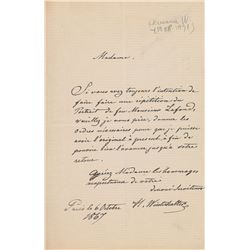 Madame.
Si vous avez toujours l'intention de
faire faire une répétition du
Portrait de feu Monsieur
veuillez je vous prie, donner les
ordres nécessaires pour que je puisse
avoir l'original à présent, afin de
pouvoir bien l'avancer jusqu'à votre
retour.
Agréez Madame les hommages
respectueux de votre
dévoué serviteur
Paris le 6 Octobre
1867